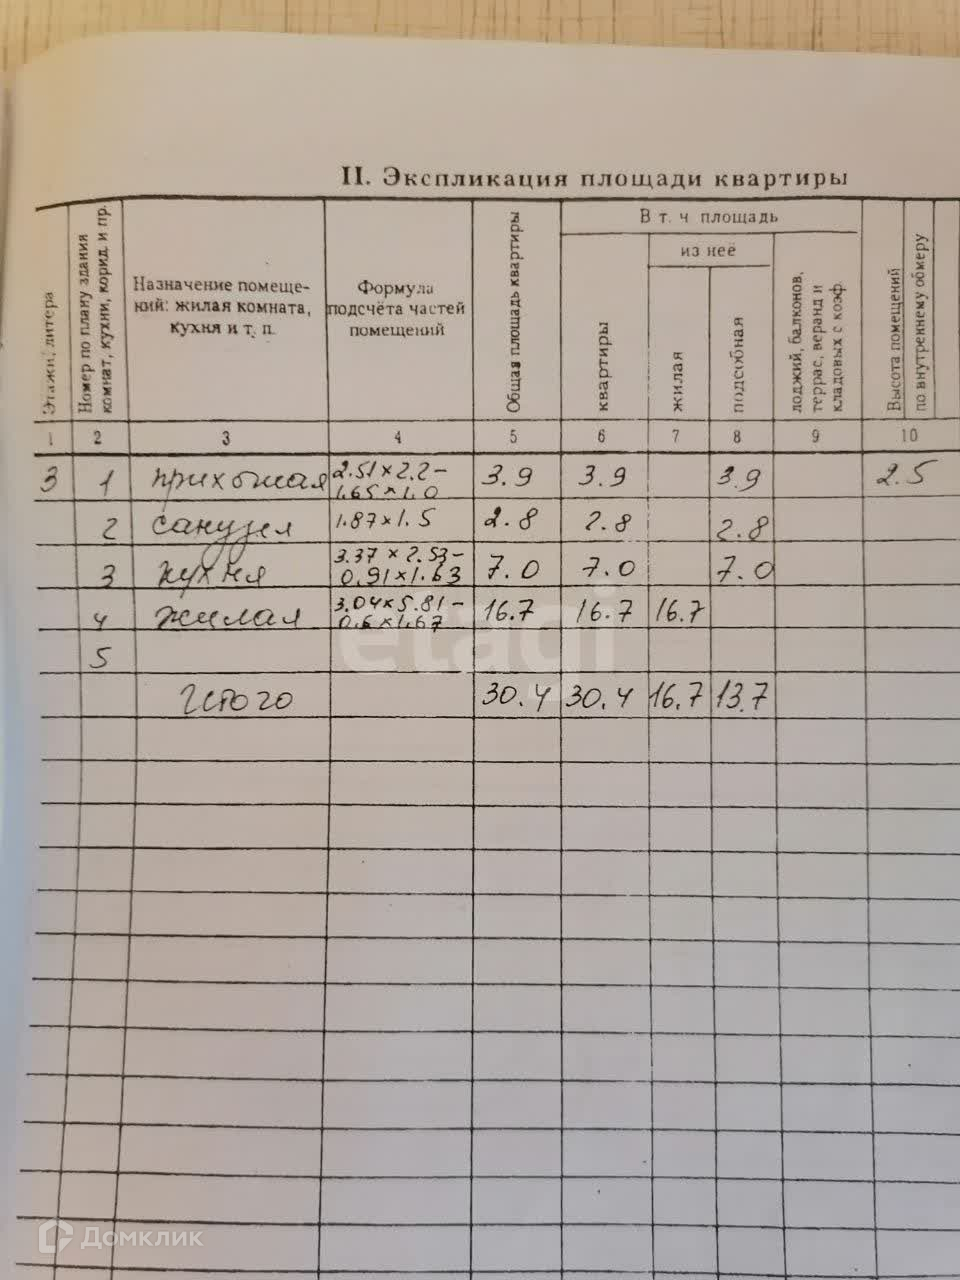 II. Экспликация площади квартиры
Этажи, литера
Номер по плану здания
комнат, кухни, корид. и пр.
Назначение помеще-
ний: жилая комната,
кухня и т. п.
Формула
подсчёта частей
помещений
Общая площадь квартиры
В т. ч площадь
из неё
квартиры
жилая
подсобная
лоджий, балконов,
террас, веранд и
кладовых с коэф.
Высота помещений
по внутреннему обмеру
1 2 3 4 5 6 7 8 9 10
3 1 прихожая 2.51×2.2- 3.9 3.9 3.9 2.5
1.65×1.0
2 санузел 1.87×1.5 2.8 2.8 2.8
3 кухня 3.37×2.53- 7.0 7.0 7.0
0.91×1.63
4 жилая 3.04×5.81- 16.7 16.7 16.7
0.6×1.67
5
Итого 30.4 30.4 16.7 13.7
etagi
Домклик